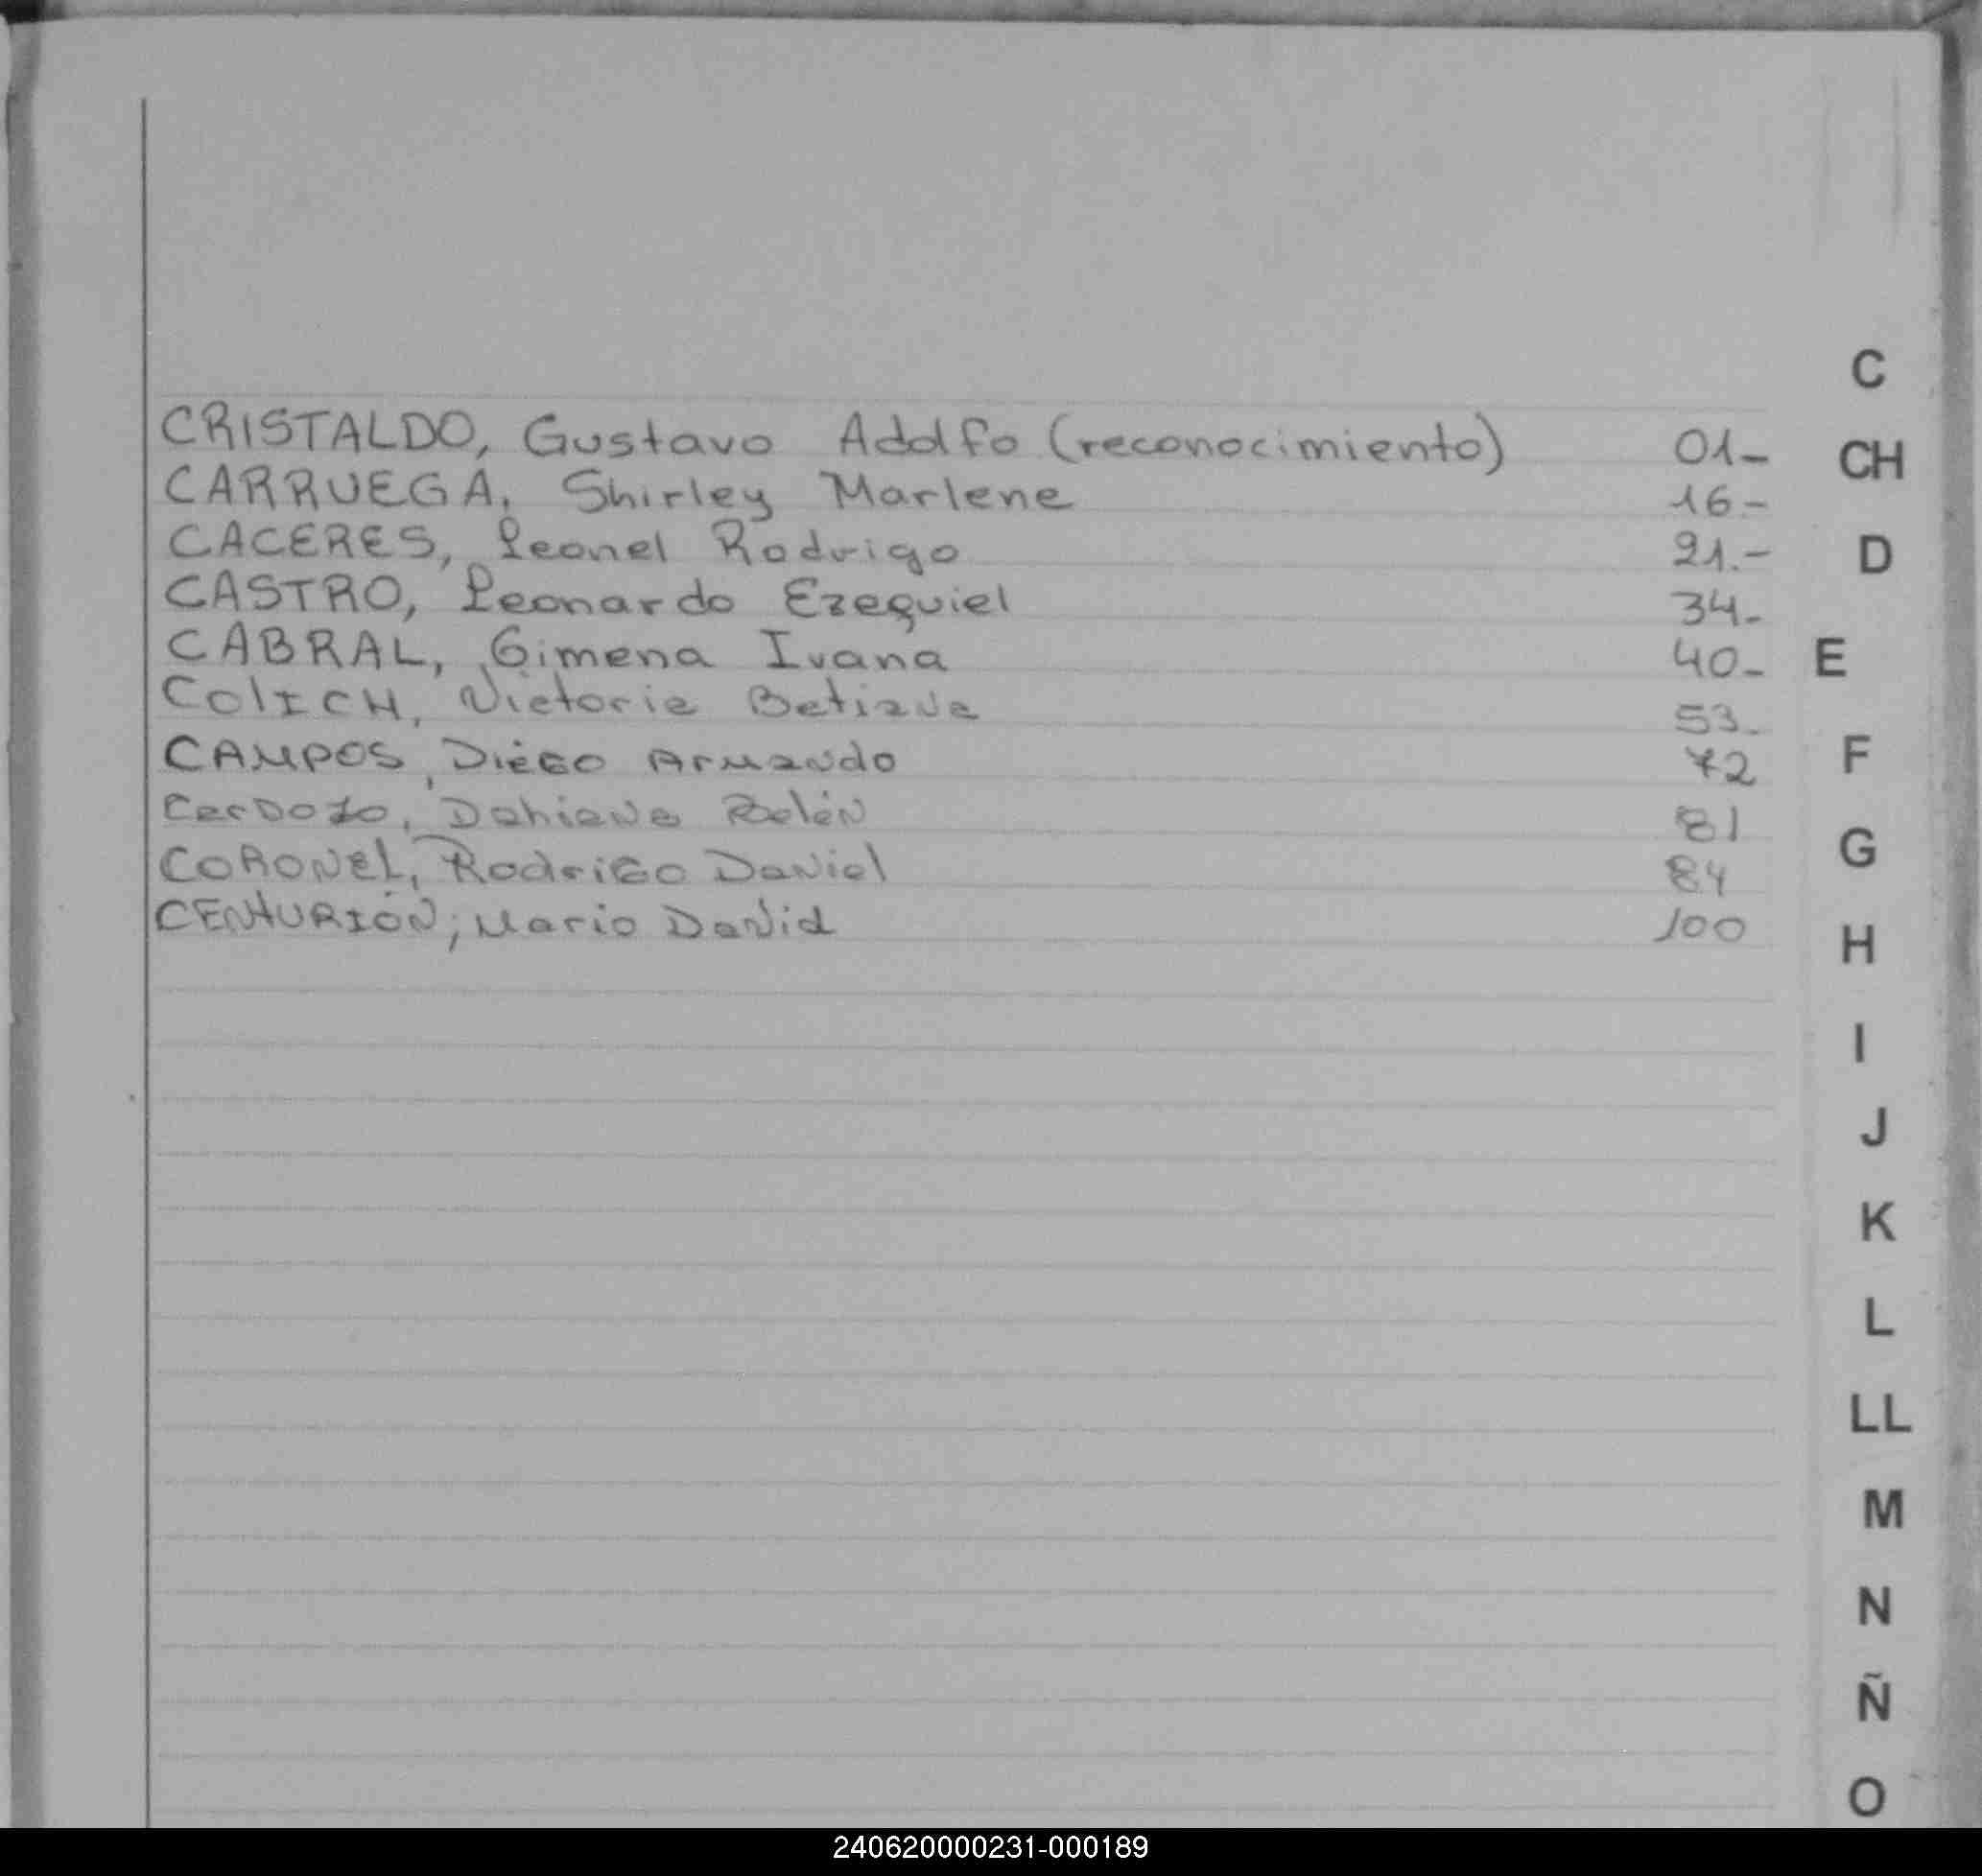 C
CRISTALDO, Gustavo Adolfo (reconocimiento) 01-
CH
CARRUEGA, Shirley Marlene 16-
CACERES, Leonel Rodrigo 21.-
D
CASTRO, Leonardo Ezequiel 34-
CABRAL, Gimena Ivana 40-
E
COlICH, Victoria Betiana 53-
CAMPOS, DiEGO Armando 72
F
CarDoZo, Dahiana Belén 81
G
CORONEL, RodriGo Daniel 84
CENTURIÓN, Mario David 100
H
I
J
K
L
LL
M
N
Ñ
O
240620000231-000189